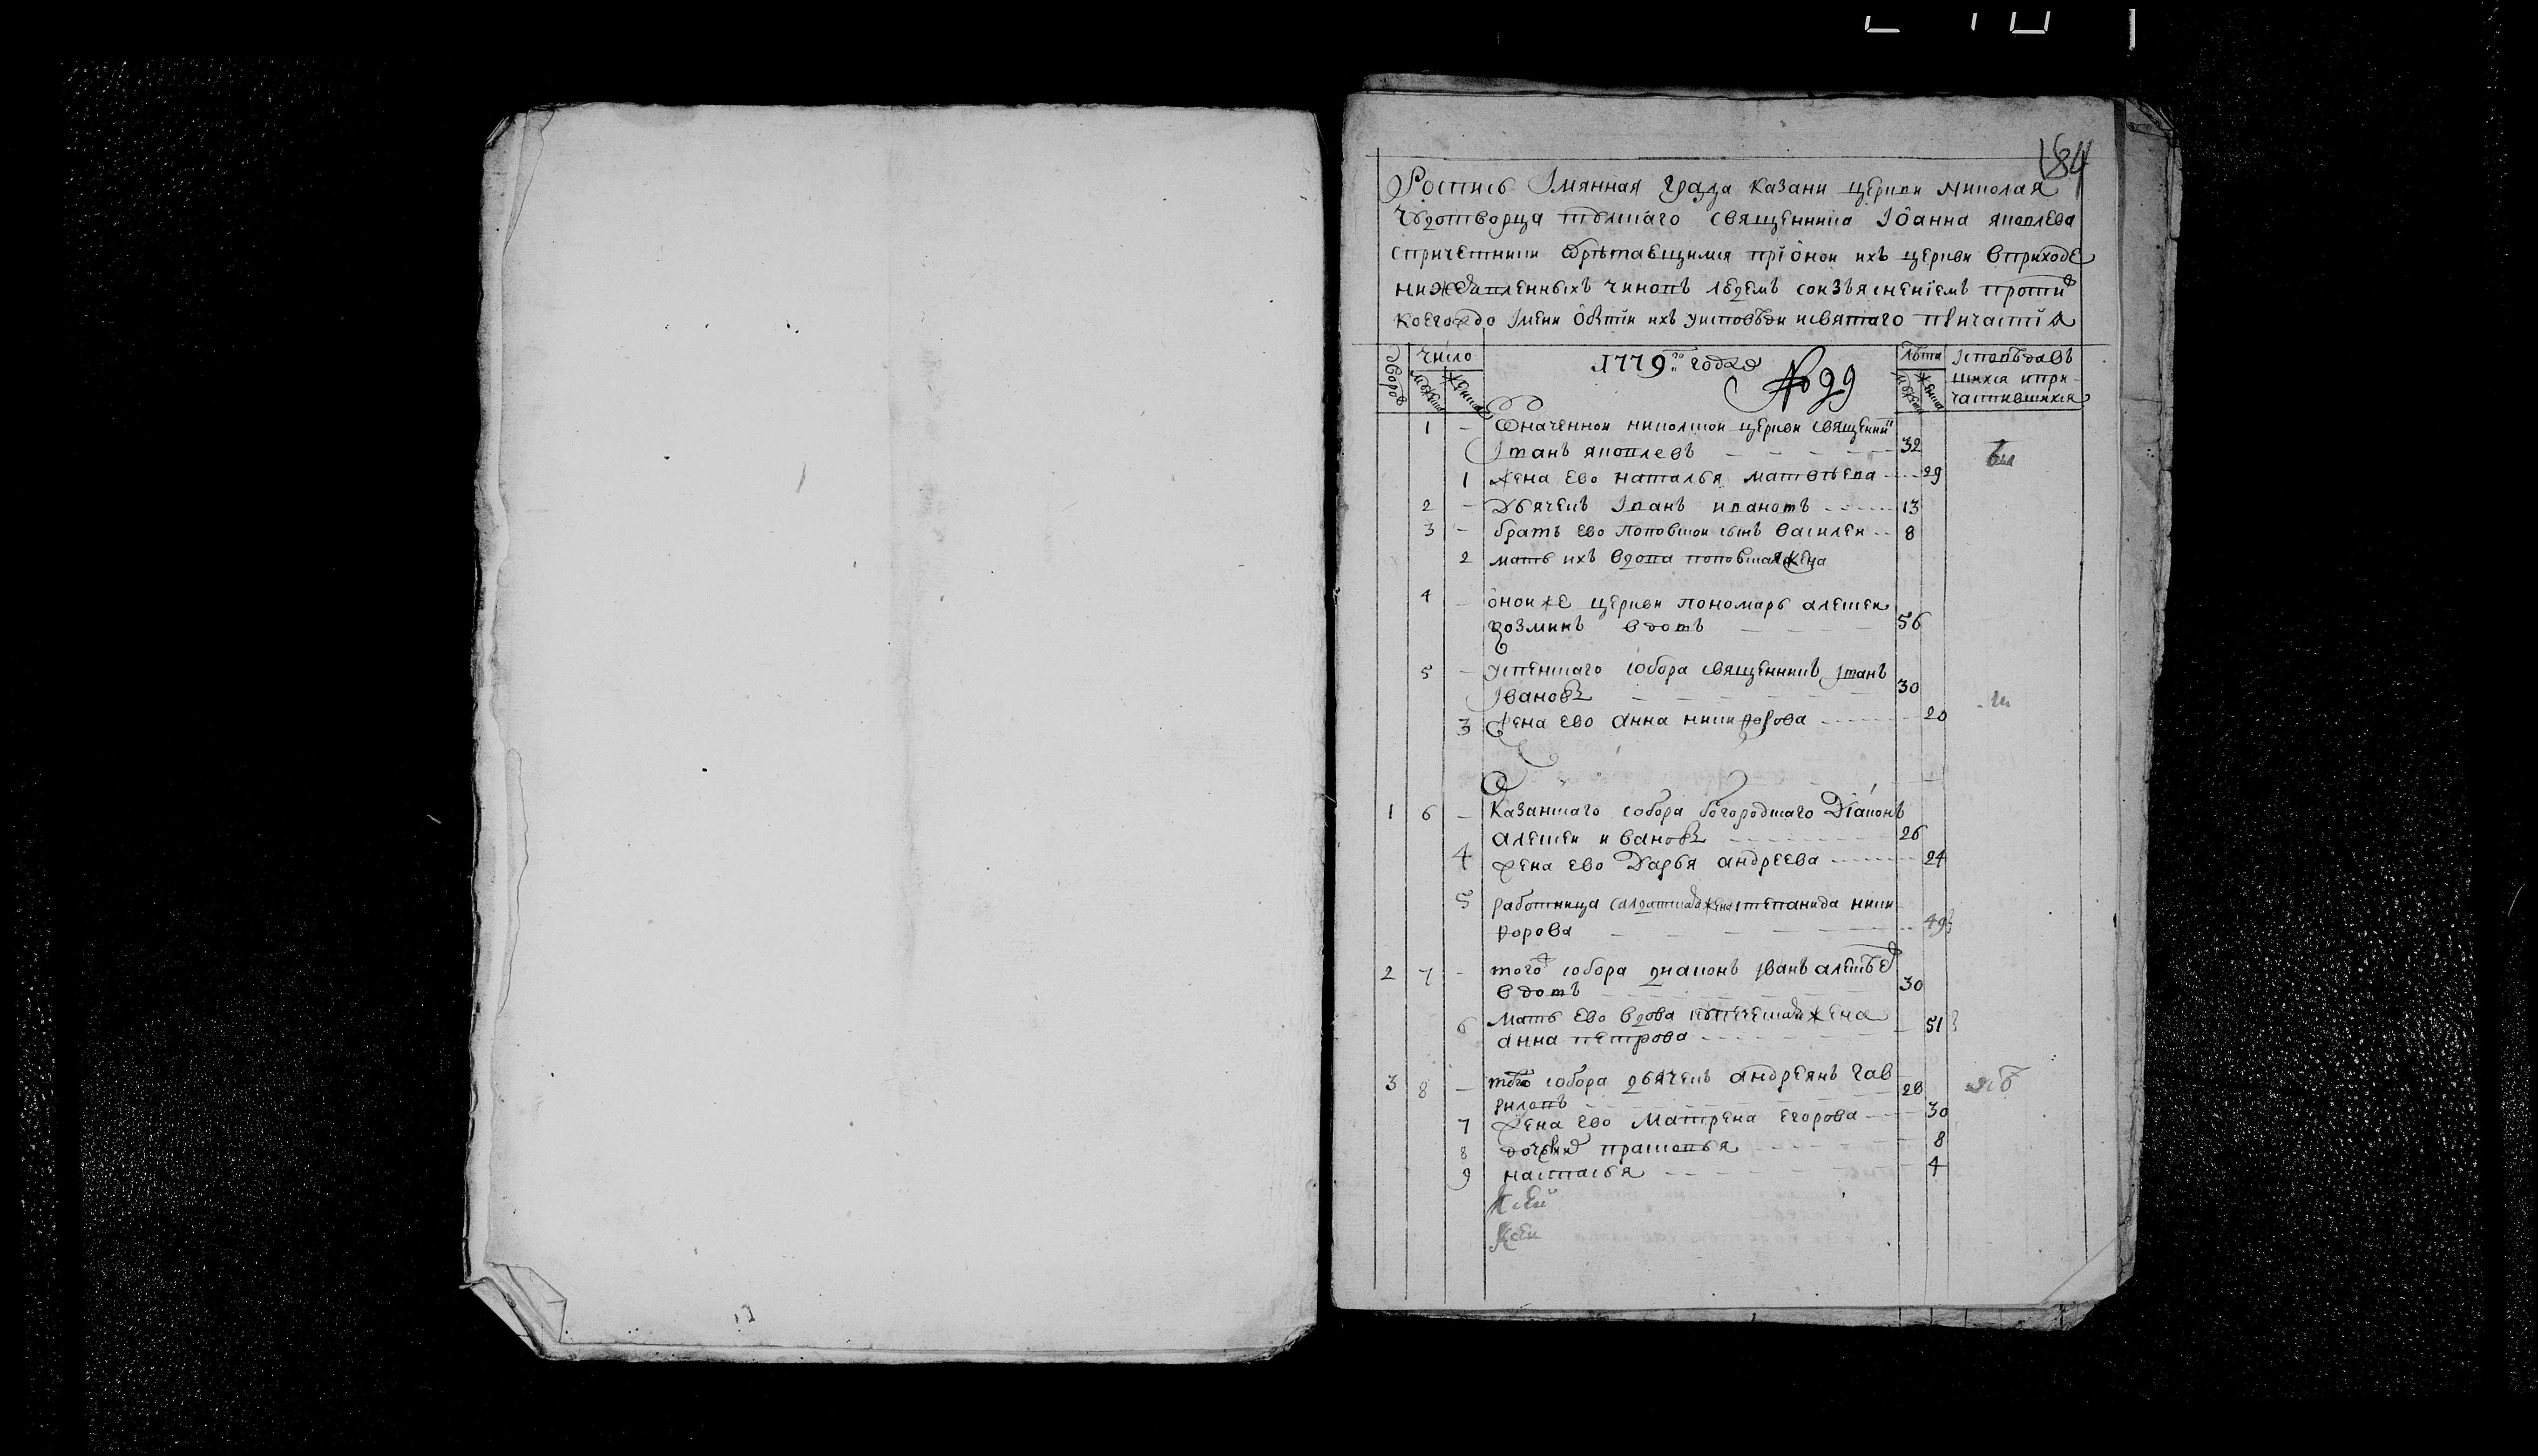 184
Роспись Имянная града казани церкви николая
чудотворца тулскаго священника Iоанна яковлева
спричетники обрѣтающимся прионой ихъ церкви вприходе
нижеявленныхъ чиновъ людемъ соизъяснениемъ противъ
коегождо имени о бытіи ихъ уисповѣди исвятаго причастия
дворовъ число 1779го года № 99 лѣта исповѣдав
мужеска женска мужеска женска шихся ипри
частившихся
1 - Означенной николской церкви священникъ
Iванъ яковлевъ 32
1 жена ево наталья матвѣева 29
2 - Дьячекъ Iванъ ивановъ 13
3 - братъ ево поповской сынъ василей 8
2 мать ихъ вдова поповская жена
4 - онойже церкви пономарь алексей
козминъ вдовъ 56
5 - успенскаго собора священникъ Iванъ
Iвановъ 30
3 жена ево анна никифорова 20
1 6 - Казанскаго собора богородскаго Дiаконъ
алексей ивановъ 26
4 жена ево Дарья андреева 24
5 работница салдатская жена степанида ники
форова 49
2 7 - того собора диаконъ Iванъ алексѣевъ
вдовъ 30
6 мать ево вдова жена
анна петрова 51
3 8 - того собора дьячекъ андреянъ гав
риловъ 28
7 жена ево Матрена егорова 30
8 дочери прасковья 8
9 настасья 4